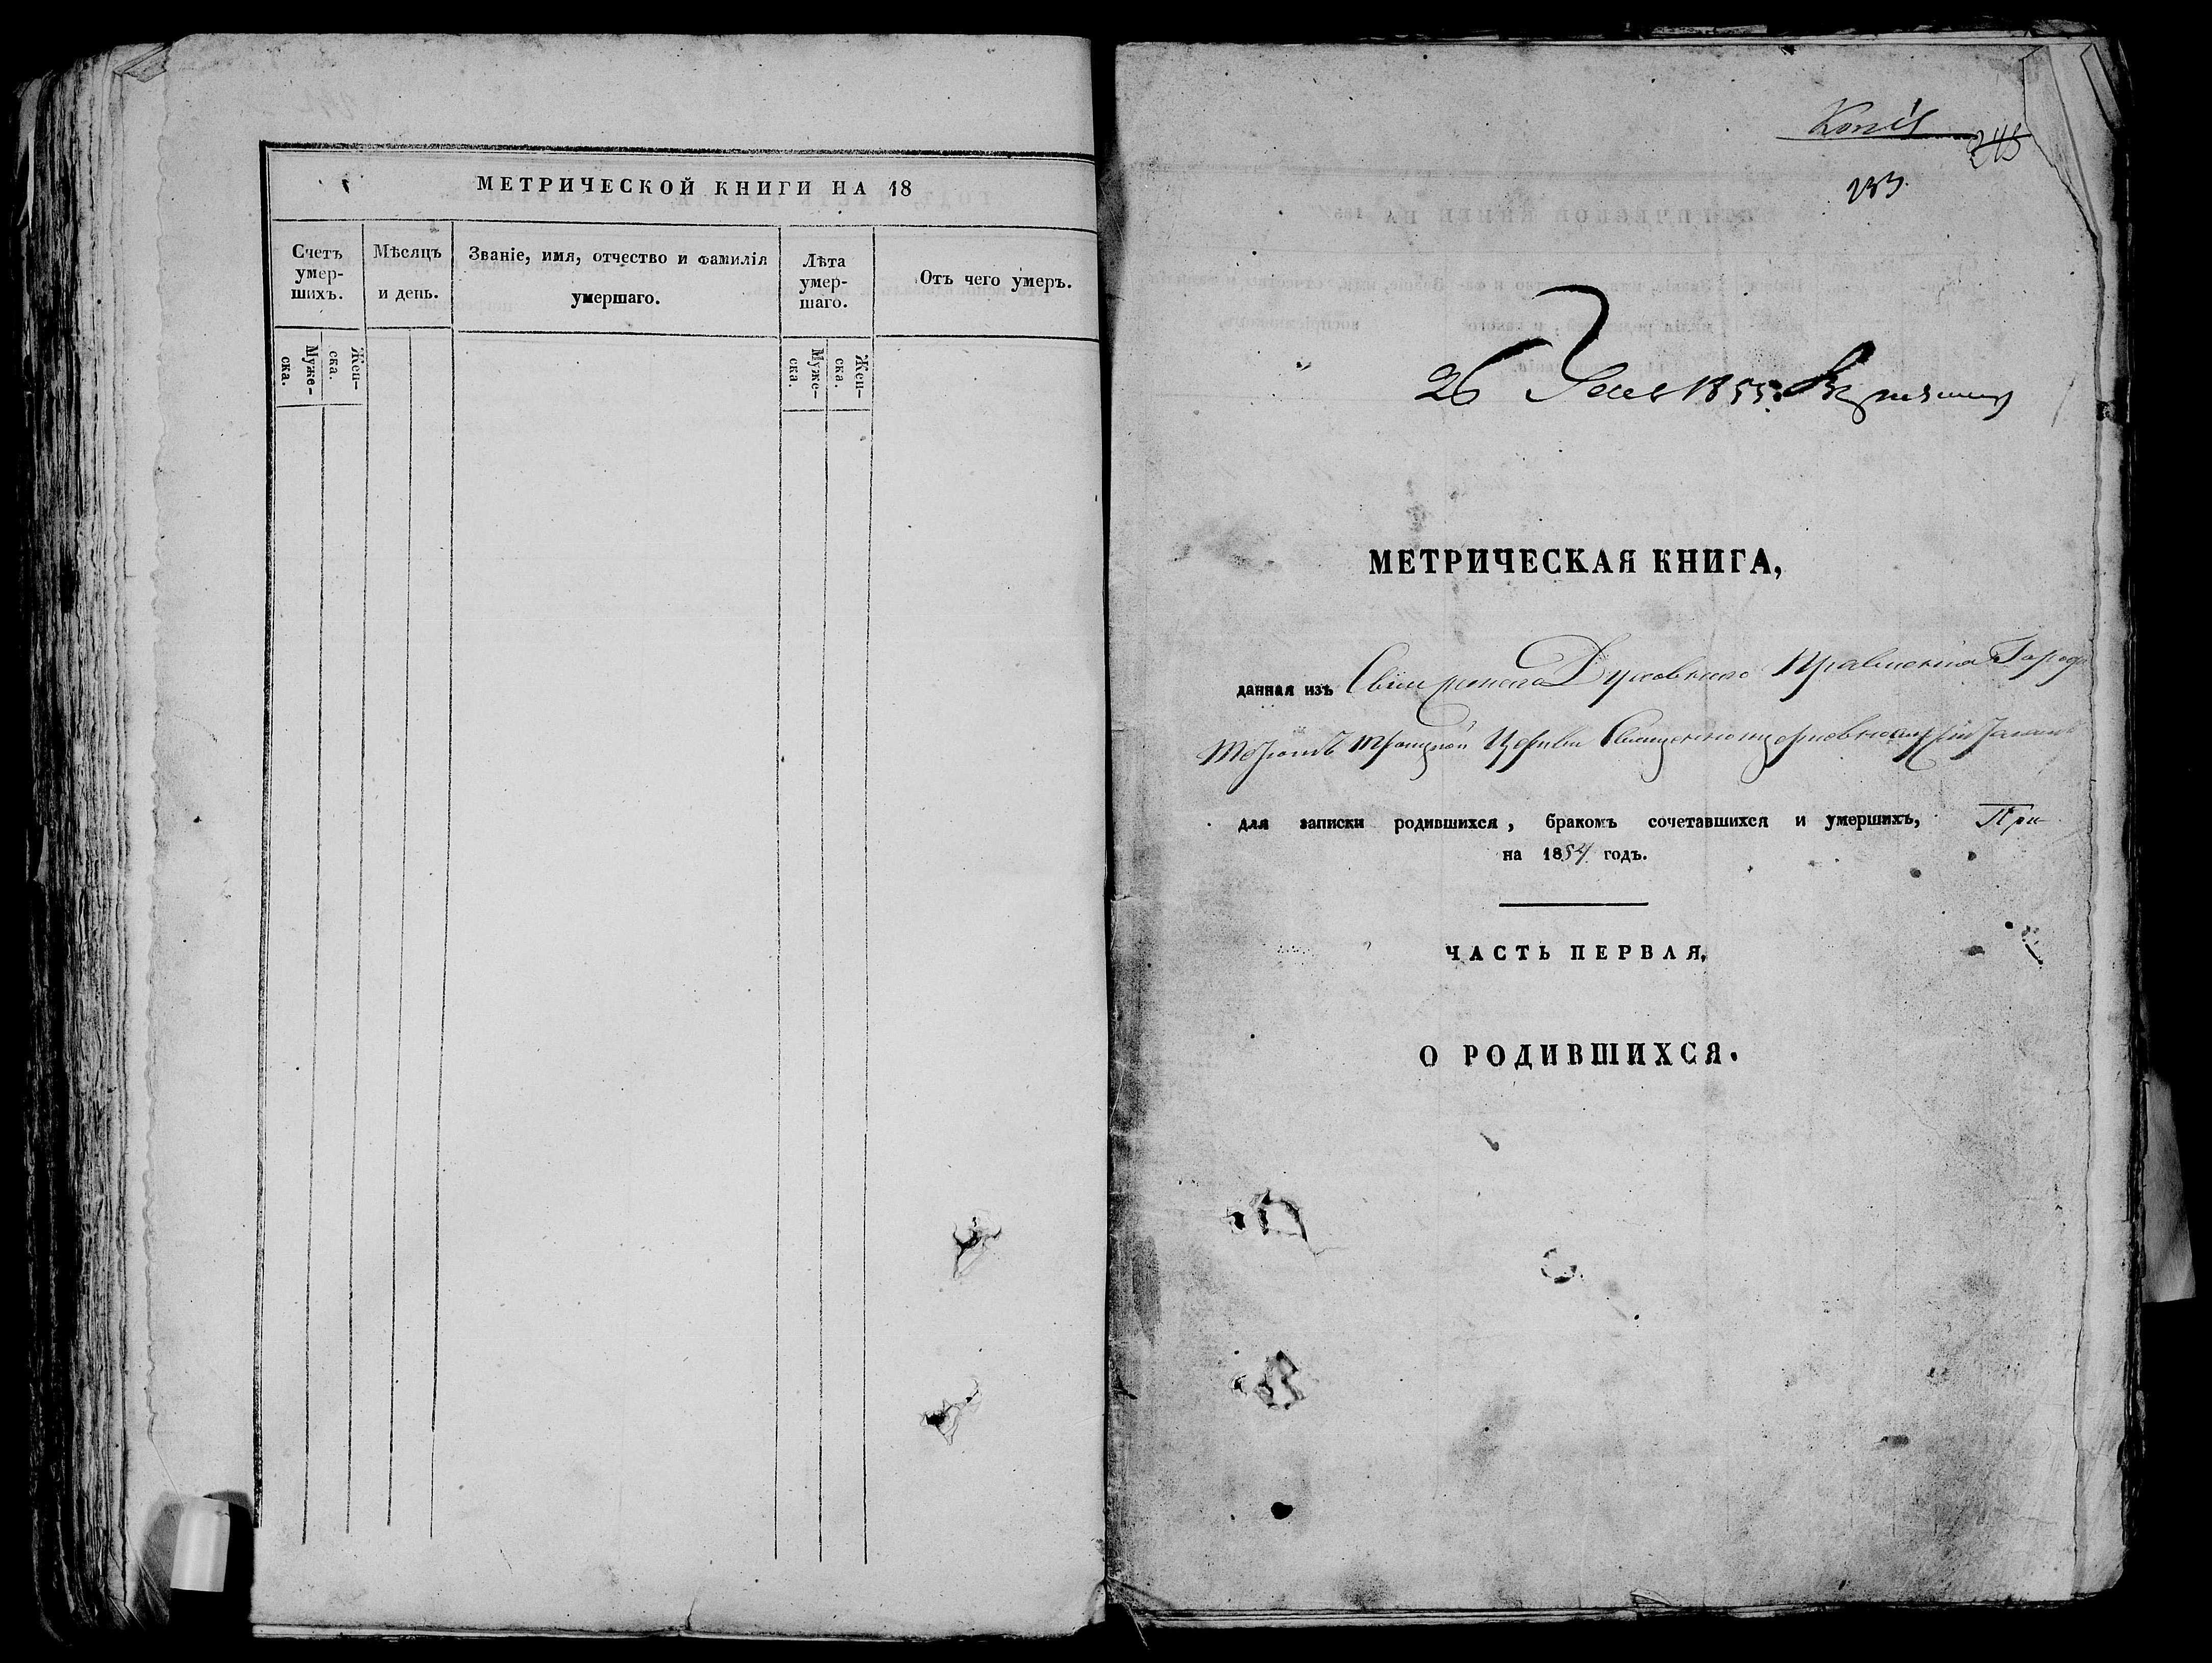 МЕТРИЧЕСКОЙ КНИГИ НА 18
Счетъ умер-шихъ.
Мѣсяцъ и день.
Званіе, имя, отчество и фамилія умершаго.
Лѣта умер-шаго.
Отъ чего умеръ.
Муже-ска.
Жен-ска.
Муже-ска.
Жен-ска.
245
233.
26 1855.
МЕТРИЧЕСКАЯ КНИГА,
данная изъ Духовнаго Правленія
Троицкой Церкви
для записки родившихся, бракомъ сочетавшихся и умершихъ,
на 1854 годъ.
ЧАСТЬ ПЕРВАЯ,
О РОДИВШИХСЯ.